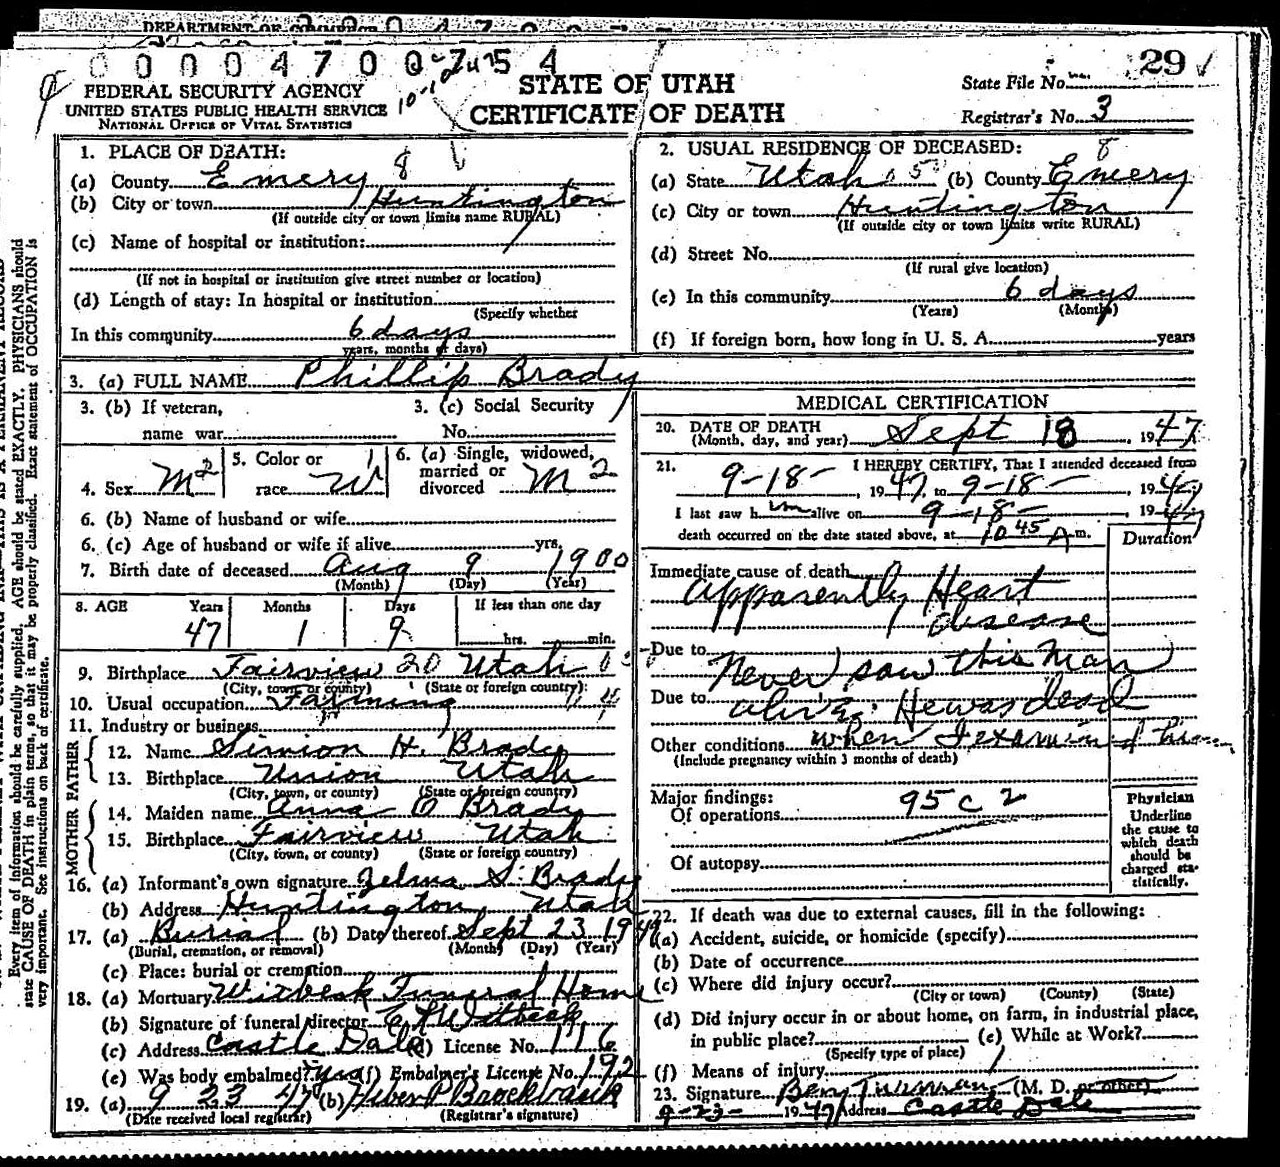 DEPARTMENT OF COMMERCE
0 0 0 0 4 7 0 0 7 5 4
29
FEDERAL SECURITY AGENCY
UNITED STATES PUBLIC HEALTH SERVICE
NATIONAL OFFICE OF VITAL STATISTICS
STATE OF UTAH
CERTIFICATE OF DEATH
State File No.
Registrar's No. 3
1. PLACE OF DEATH: 8
(a) County Emery
(b) City or town Huntington
(If outside city or town limits name RURAL)
(c) Name of hospital or institution:
(If not in hospital or institution give street number or location)
(d) Length of stay: In hospital or institution
(Specify whether
In this community 6 days
years, months or days)
2. USUAL RESIDENCE OF DECEASED: 8
(a) State Utah 05 (b) County Emery
(c) City or town Huntington
(If outside city or town limits write RURAL)
(d) Street No.
(If rural give location)
(e) In this community 6 days
(Years) (Months)
(f) If foreign born, how long in U. S. A. years
3. (a) FULL NAME Phillip Brady
3. (b) If veteran,
name war
3. (c) Social Security
No.
4. Sex M 2
5. Color or race W 1
6. (a) Single, widowed, married or divorced M 2
6. (b) Name of husband or wife
6. (c) Age of husband or wife if alive yrs.
7. Birth date of deceased Aug 9 1900
(Month) (Day) (Year)
8. AGE Years Months Days If less than one day
47 1 9 hrs. min.
9. Birthplace Fairview 20 Utah
(City, town, or county) (State or foreign country)
10. Usual occupation Farming
11. Industry or business
FATHER
12. Name Simion H. Brady
13. Birthplace Union Utah
(City, town, or county) (State or foreign country)
MOTHER
14. Maiden name Anna O Brady
15. Birthplace Fairview Utah
(City, town, or county) (State or foreign country)
16. (a) Informant's own signature Zelma S. Brady
(b) Address Huntington, Utah
17. (a) Burial (b) Date thereof Sept 23 1947
(Burial, cremation, or removal) (Month) (Day) (Year)
(c) Place: burial or cremation
18. (a) Mortuary Witbeck Funeral Home
(b) Signature of funeral director E R Witbeck
(c) Address Castle Dale (d) License No. 116
(e) Was body embalmed? yes (f) Embalmer's License No. 192
19. (a) 9 23 47 (b) Heber P Brockbank
(Date received local registrar) (Registrar's signature)
MEDICAL CERTIFICATION
20. DATE OF DEATH
(Month, day, and year) Sept 18, 1947
21. I HEREBY CERTIFY, That I attended deceased from
9-18-, 1947, to 9-18-, 1947
I last saw him alive on 9-18-, 1947
death occurred on the date stated above, at 10 45 A m.
Duration
Immediate cause of death
Apparently Heart
disease
Due to Never saw this man
Due to alive. He was dead
Other conditions when I examined him
(Include pregnancy within 3 months of death)
Major findings: 95 c 2
Of operations
Of autopsy
Physician
Underline
the cause to
which death
should be
charged sta-
tistically.
22. If death was due to external causes, fill in the following:
(a) Accident, suicide, or homicide (specify)
(b) Date of occurrence
(c) Where did injury occur?
(City or town) (County) (State)
(d) Did injury occur in or about home, on farm, in industrial place,
in public place? (e) While at Work?
(Specify type of place)
(f) Means of injury
23. Signature (M. D. or other)
9-23- 1947 Address Castle Dale
Every item of information should be carefully supplied. AGE should be stated EXACTLY. PHYSICIANS should
state CAUSE OF DEATH in plain terms, so that it may be properly classified. Exact statement of OCCUPATION is
very important. See instructions on back of certificate.